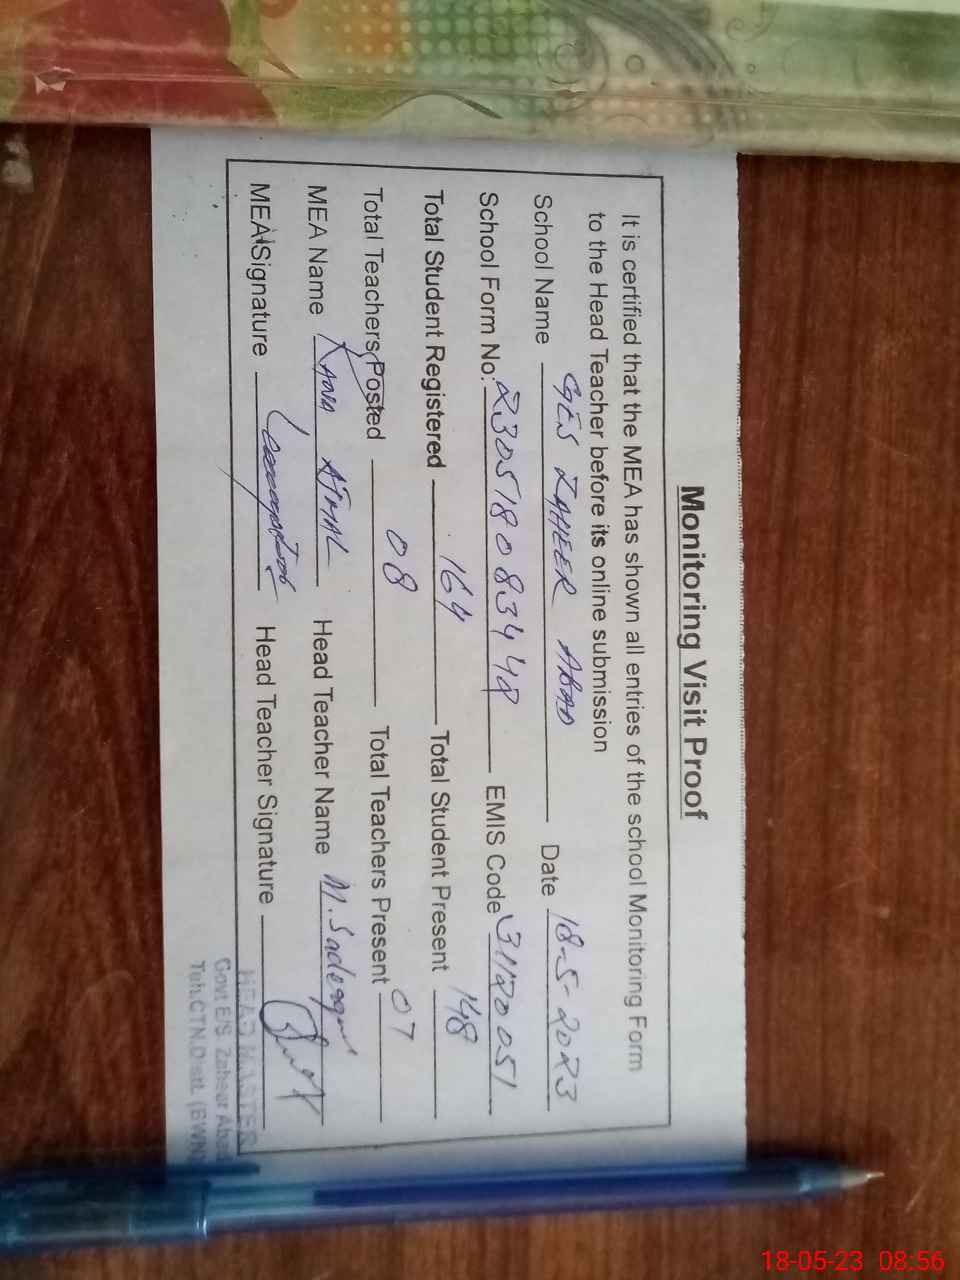 Monitoring Visit Proof
It is certified that the MEA has shown all entries of the school Monitoring Form
to the Head Teacher before its online submission
School Name GES ZAHEER ABAD Date 18-5-2023
School Form No. 230518083448 EMIS Code 31120051
Total Student Registered 164 Total Student Present 148
Total Teachers Posted 08 Total Teachers Present 07
MEA Name AJMAL Head Teacher Name
MEA Signature Head Teacher Signature
HEAD MASTER
Govt E/S Zaheer Abad
Teh.CTN.Distt. (BWN)
18-05-23 08:56